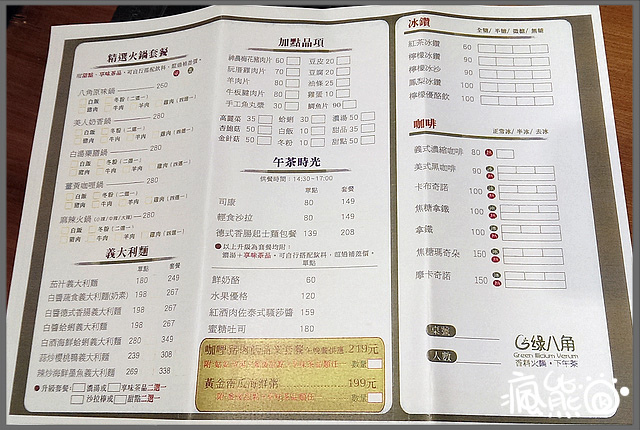 精選火鍋套餐
八角原味鍋 260
白飯 冬粉(二選一)
豬肉 牛肉 羊肉 雞肉(四選一)
美人奶香鍋 280
白飯 冬粉(二選一)
豬肉 牛肉 羊肉 雞肉(四選一)
白湯藥膳鍋 280
白飯 冬粉(二選一)
豬肉 牛肉 羊肉 雞肉(四選一)
薑黃咖哩鍋 280
白飯 冬粉(二選一)
豬肉 牛肉 羊肉 雞肉(四選一)
麻辣火鍋 280
白飯 冬粉(二選一)
豬肉 牛肉 羊肉 雞肉(四選一)
義大利麵
單點 套餐
茄汁義大利麵 180 249
白醬蔬食義大利麵(奶素) 198 267
白醬德式香腸義大利麵 198 267
白醬蛤蜊義大利麵 198 267
白酒海鮮蛤蜊義大利麵 280 349
蒜炒櫻桃鴨義大利麵 239 308
辣炒海鮮墨魚義大利麵 269 338
升級套餐: 濃湯或 享味茶品二選一
沙拉棒或 甜點二選一
加點品項
神農梅花豬肉片 60 豆皮 20
阮厝雞肉片 70 豆腐 20
羊肉片 80 油條 25
牛板腱肉片 80 雞蛋 10
手工魚丸漿 30 鯛魚片 90
高麗菜 35 蛤蜊 30 濃湯 50
杏鮑菇 50 白飯 10 甜品 35
金針菇 50 冬粉 10 甜點 50
午茶時光
供餐時間:14:30~17:00
單點 套餐
司康 80 149
輕食沙拉 80 149
德式香腸起士麵包餐 139 208
以上升級為套餐均附:
單點
鮮奶酪 60
水果優格 120
紅酒肉佐泰式騷莎醬 159
蜜糖吐司 180
219元
數量
黃金南瓜海鮮粥 199元
數量
冰鑽
全糖/ 半糖/ 微糖/ 無糖
紅茶冰鑽 60
檸檬冰鑽 90
檸檬冰沙 90
鳳梨冰鑽 100
檸檬優酪飲 100
咖啡
正常冰/ 半冰/ 去冰
義式濃縮咖啡 80
美式黑咖啡 90
卡布奇諾 100
焦糖拿鐵 100
拿鐵 100
焦糖瑪奇朵 150
摩卡奇諾 150
桌號
人數
綠八角
Green Illicium Verum
香料火鍋·下午茶
瘋熊窩